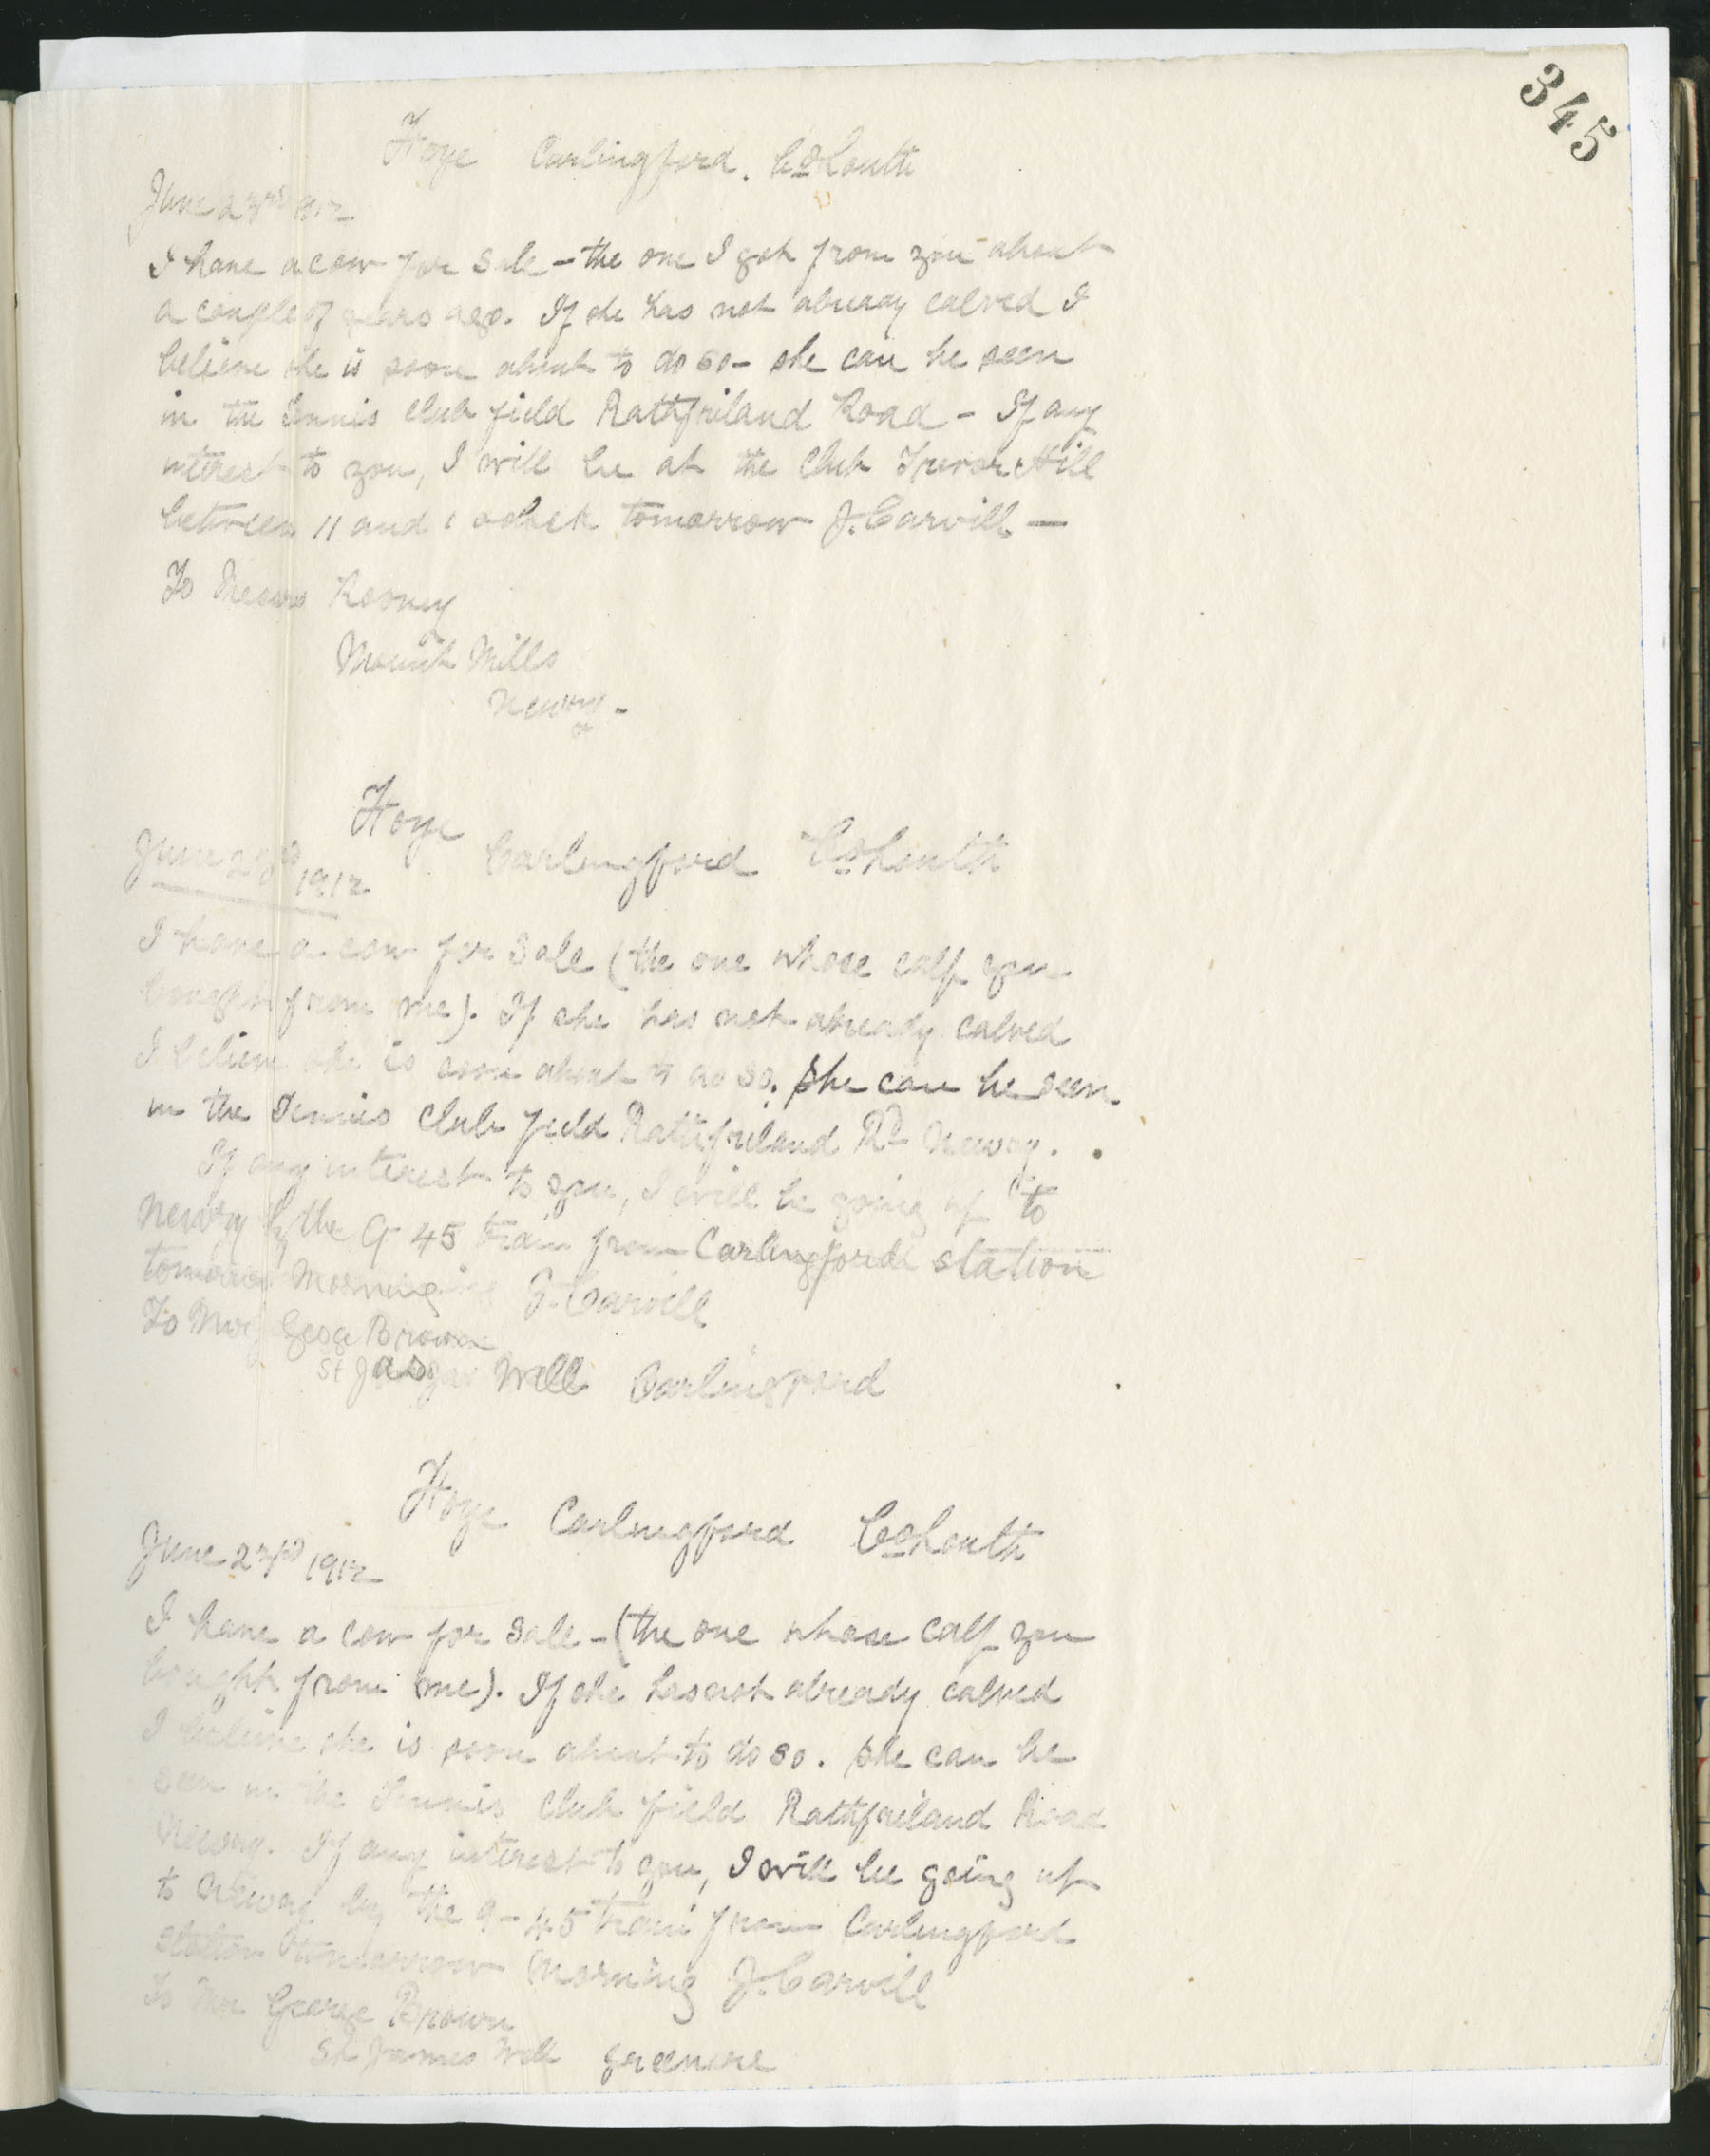 345
Foye Carlingford. Co Louth
June 23rd 1912
I have a cow for sale - the one I got from you about
a couple of years ago. If she has not already calved I
believe she is soon about to do so - she can be seen
in the Tennis Club field Rathfriland Road - If any
interest to you, I will be at the Club Trevor Hill
between 11 and 1 oclock tomorrow J. Carvill -
To Messrs Rooney
Mount Mills
Newry -
Foye Carlingford Co Louth
June 23rd 1912
I have a cow for sale (the one whose calf you
bought from me). If she has not already calved
I believe she is soon about to do so. She can be seen
in the Tennis Club field Rathfriland Rd Newry.
If any interest to you, I will be going up to
Newry by the 9 45 train from Carlingford station
tomorrow morning J. Carvill
To Mr Brown
St Well Carlingford
Foye Carlingford Co Louth
June 23rd 1912
I have a cow for sale - (the one whose calf you
bought from me). If she has not already calved
I believe she is soon about to do so. She can be
seen in the Tennis Club field Rathfriland Road
Newry. If any interest to you, I will be going up
to Newry by the 9-45 train from Carlingford
station tomorrow morning J. Carvill
To Mr George Brown
St James Well Greenore